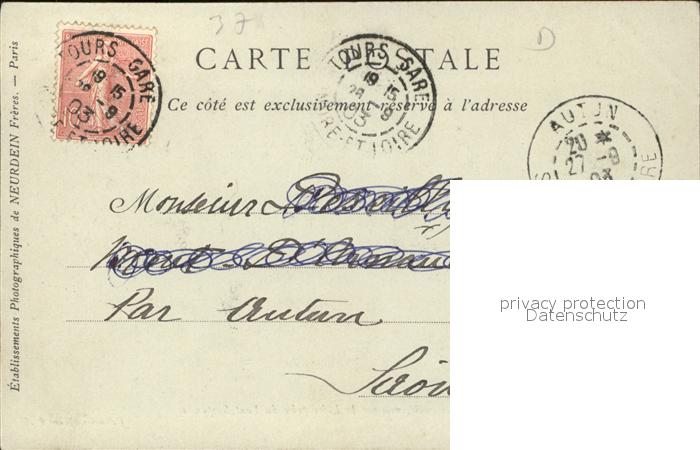 37
D
CARTE POSTALE
Ce côté est exclusivement réservé à l'adresse
TOURS-GARE
19 15
26 -9
03
INDRE-ET-LOIRE
TOURS-GARE
19 15
26 -9
03
INDRE-ET-LOIRE
AUTUN
20 *
27 -9
03
Monsieur
Par Autun
Saô
Établissements Photographiques de NEURDEIN Frères. — Paris
privacy protection
Datenschutz